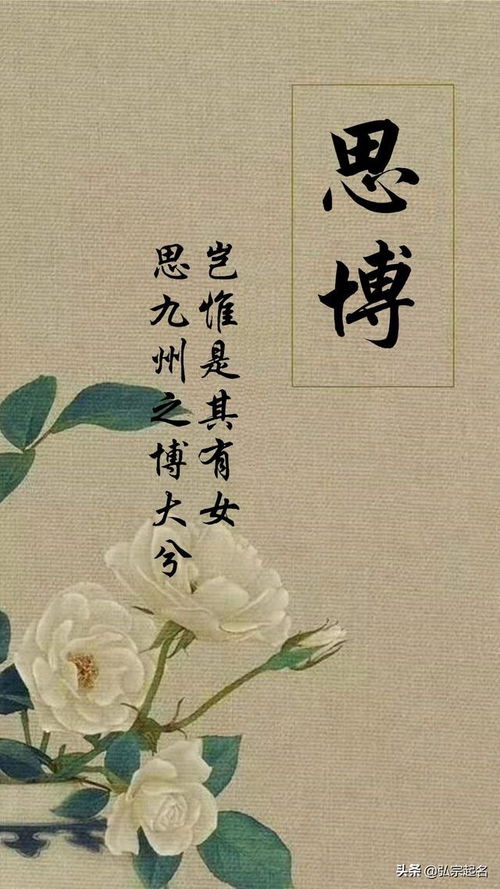 思博
思九州之博大兮
岂惟是其有女
头条 @弘宗起名